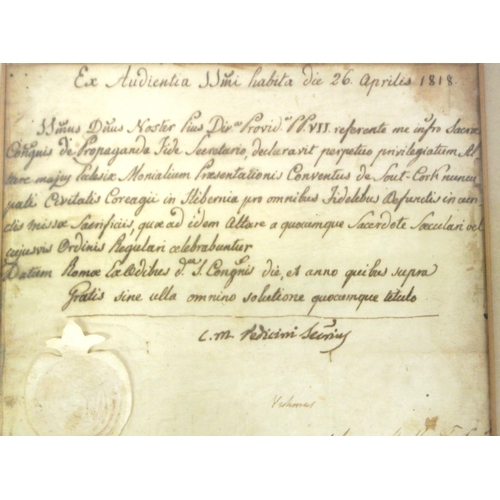 Ex Audientia SSmi habita die 26. Aprilis 1818.
SSmus Dnus Noster Pius Div.ª Provid.ª PP. VII. referente me infro Sacræ
Congnis de Propaganda Fide Secretario, declaravit perpetuo privilegiatum Al-
tare majus Ecclesiæ Monialium Presentationis Conventus de Sout-Cork nuncu-
pati Civitatis Coreagii in Hibernia pro omnibus Fidelibus Defunctis in cun-
ctis missæ Sacrificiis, quæ ad idem Altare a quocumque Sacerdote Sæculari vel
cujusvis Ordinis Regulari celebrabuntur
Datum Romæ ex Ædibus d.æ S. Congnis die, et anno quibus supra
Gratis sine ulla omnino solutione quocumque titulo
C. M. Pedicini Secrius